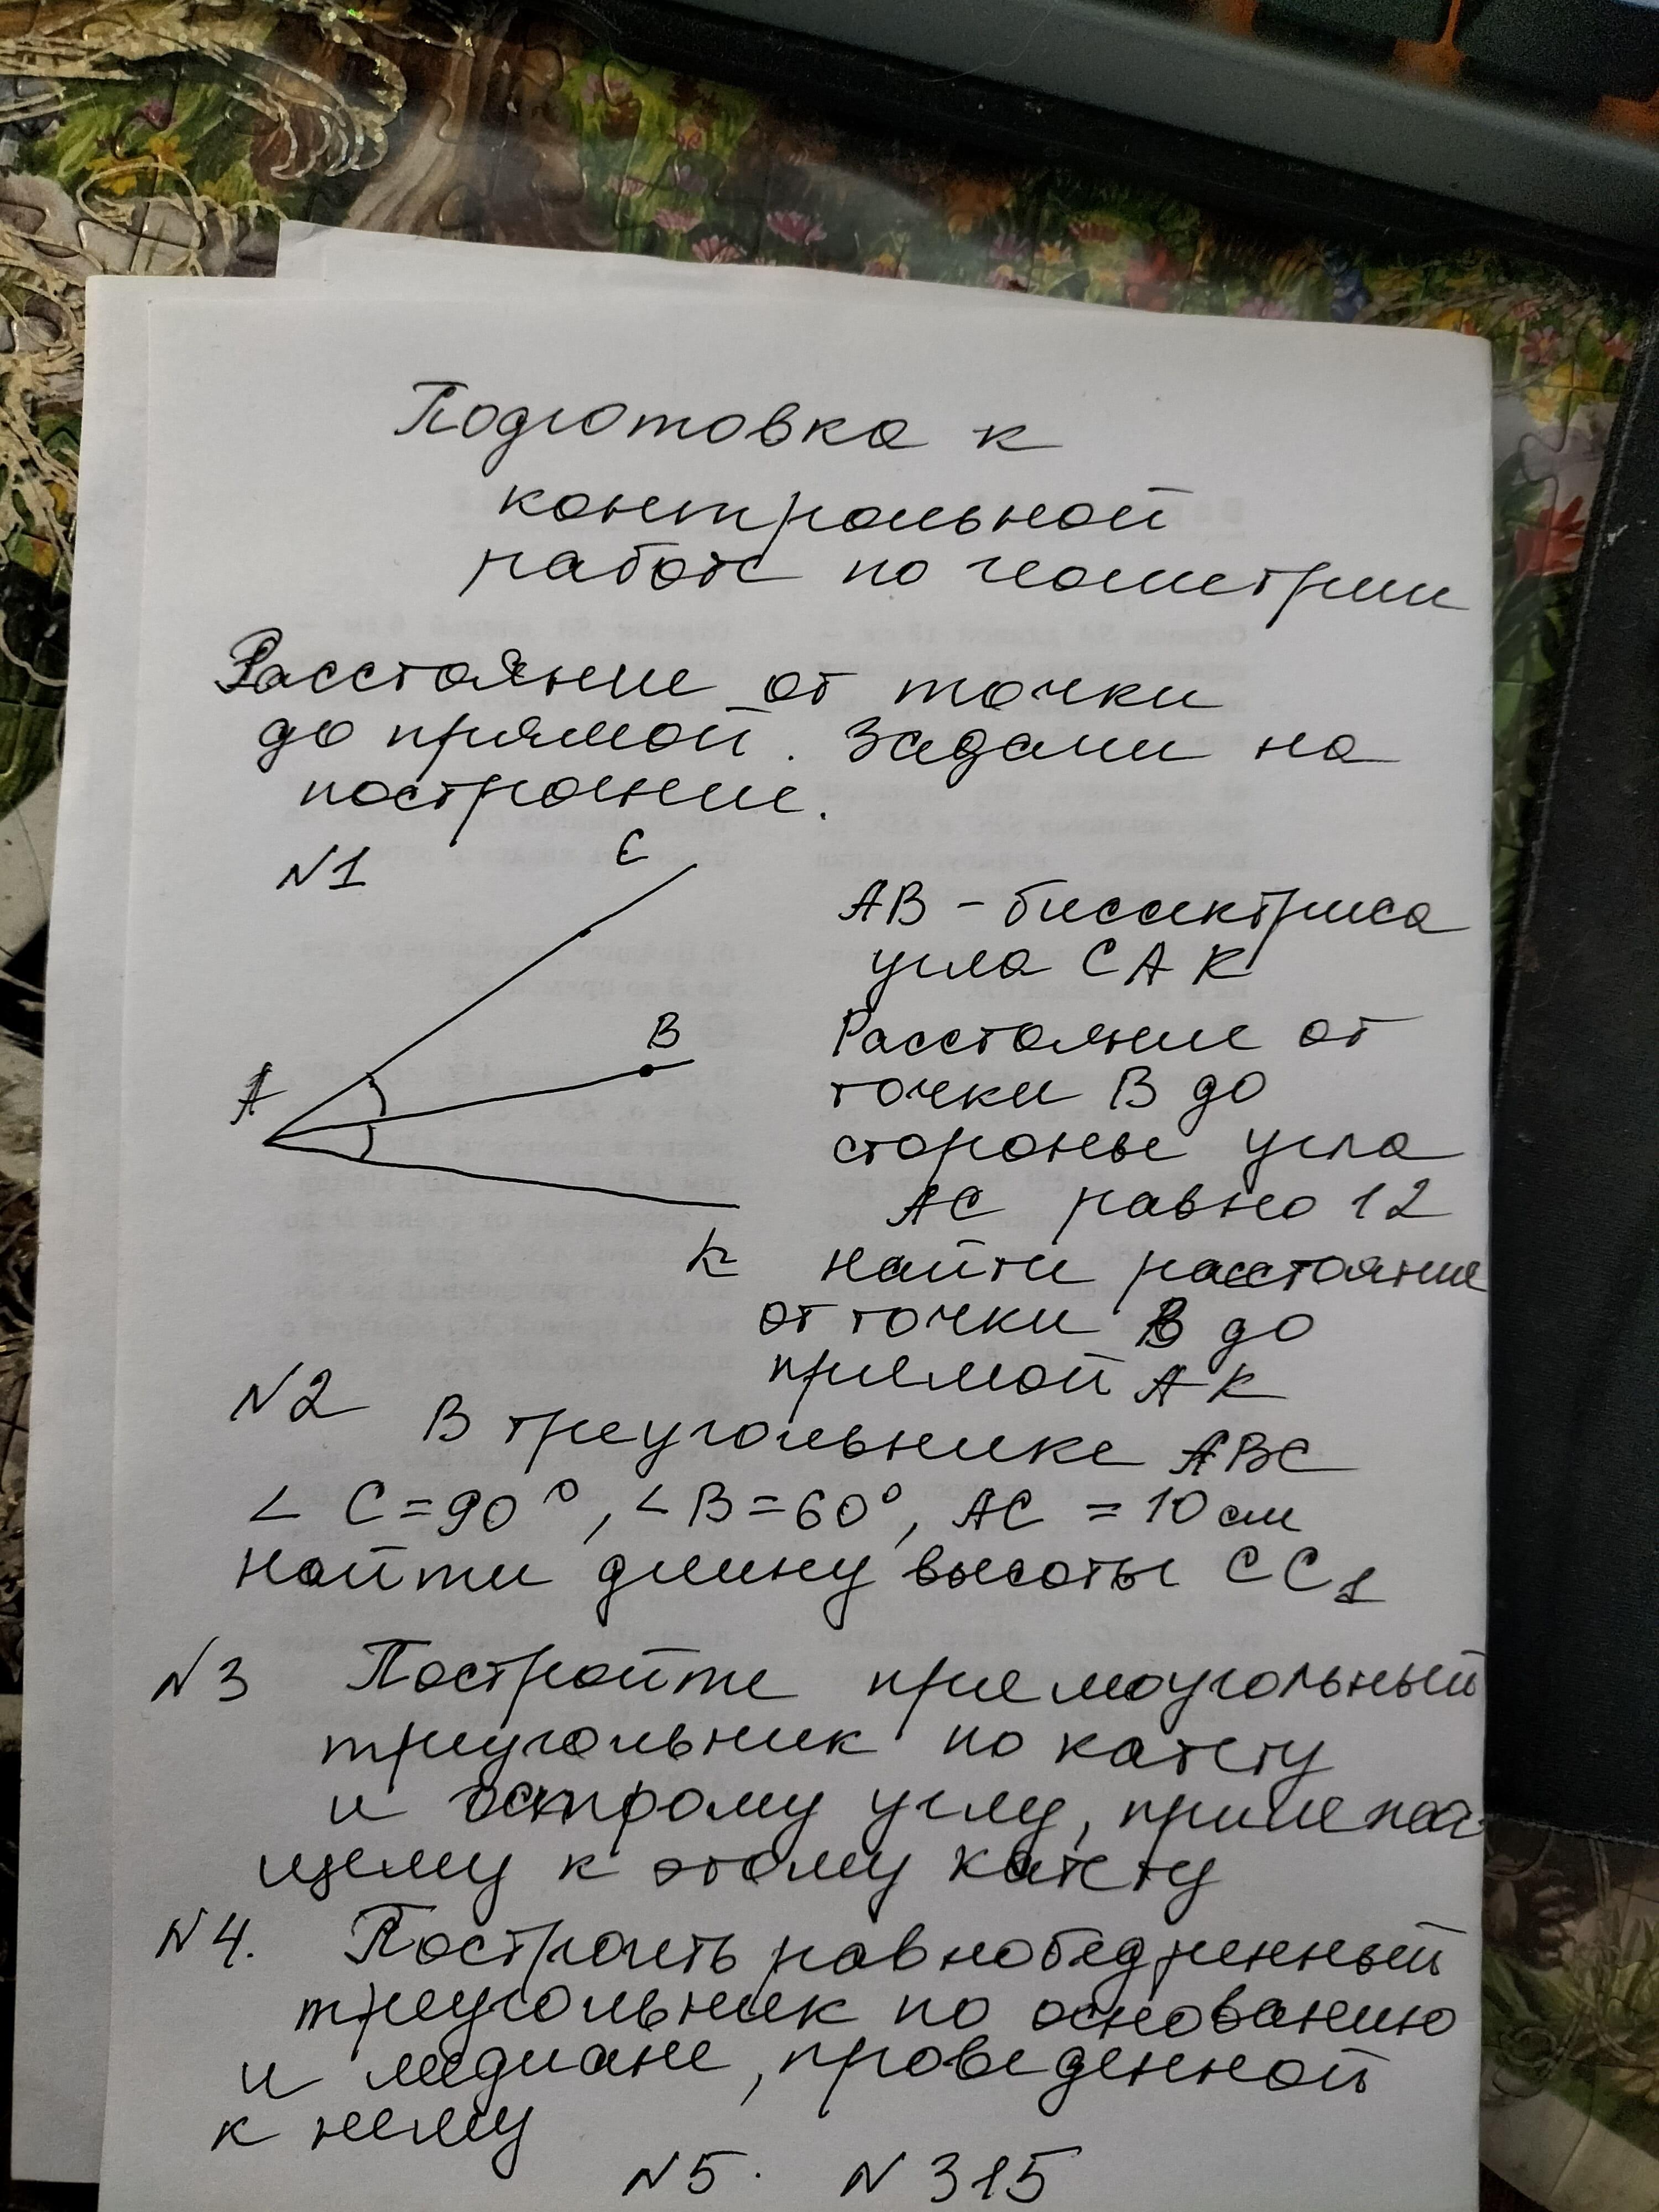 Подготовка к
контрольной
работе по геометрии
Расстояние от точки
до прямой. Задачи на
построение.
N1
C
AB - биссектриса
угла CAK
B
Расстояние от
A
точки B до
стороны угла
AC равно 12
K
найти расстояние
от точки B до
прямой AK
N2
В треугольнике ABC
∠ C=90°, ∠B=60°, AC = 10 см
найти длину высоты CC1
N3 Постройте прямоугольный
треугольник по катету
и острому углу, прилежа-
щему к этому катету
N4. Построить равнобедренный
треугольник по основанию
и медиане, проведенной
к нему
N5. N 315